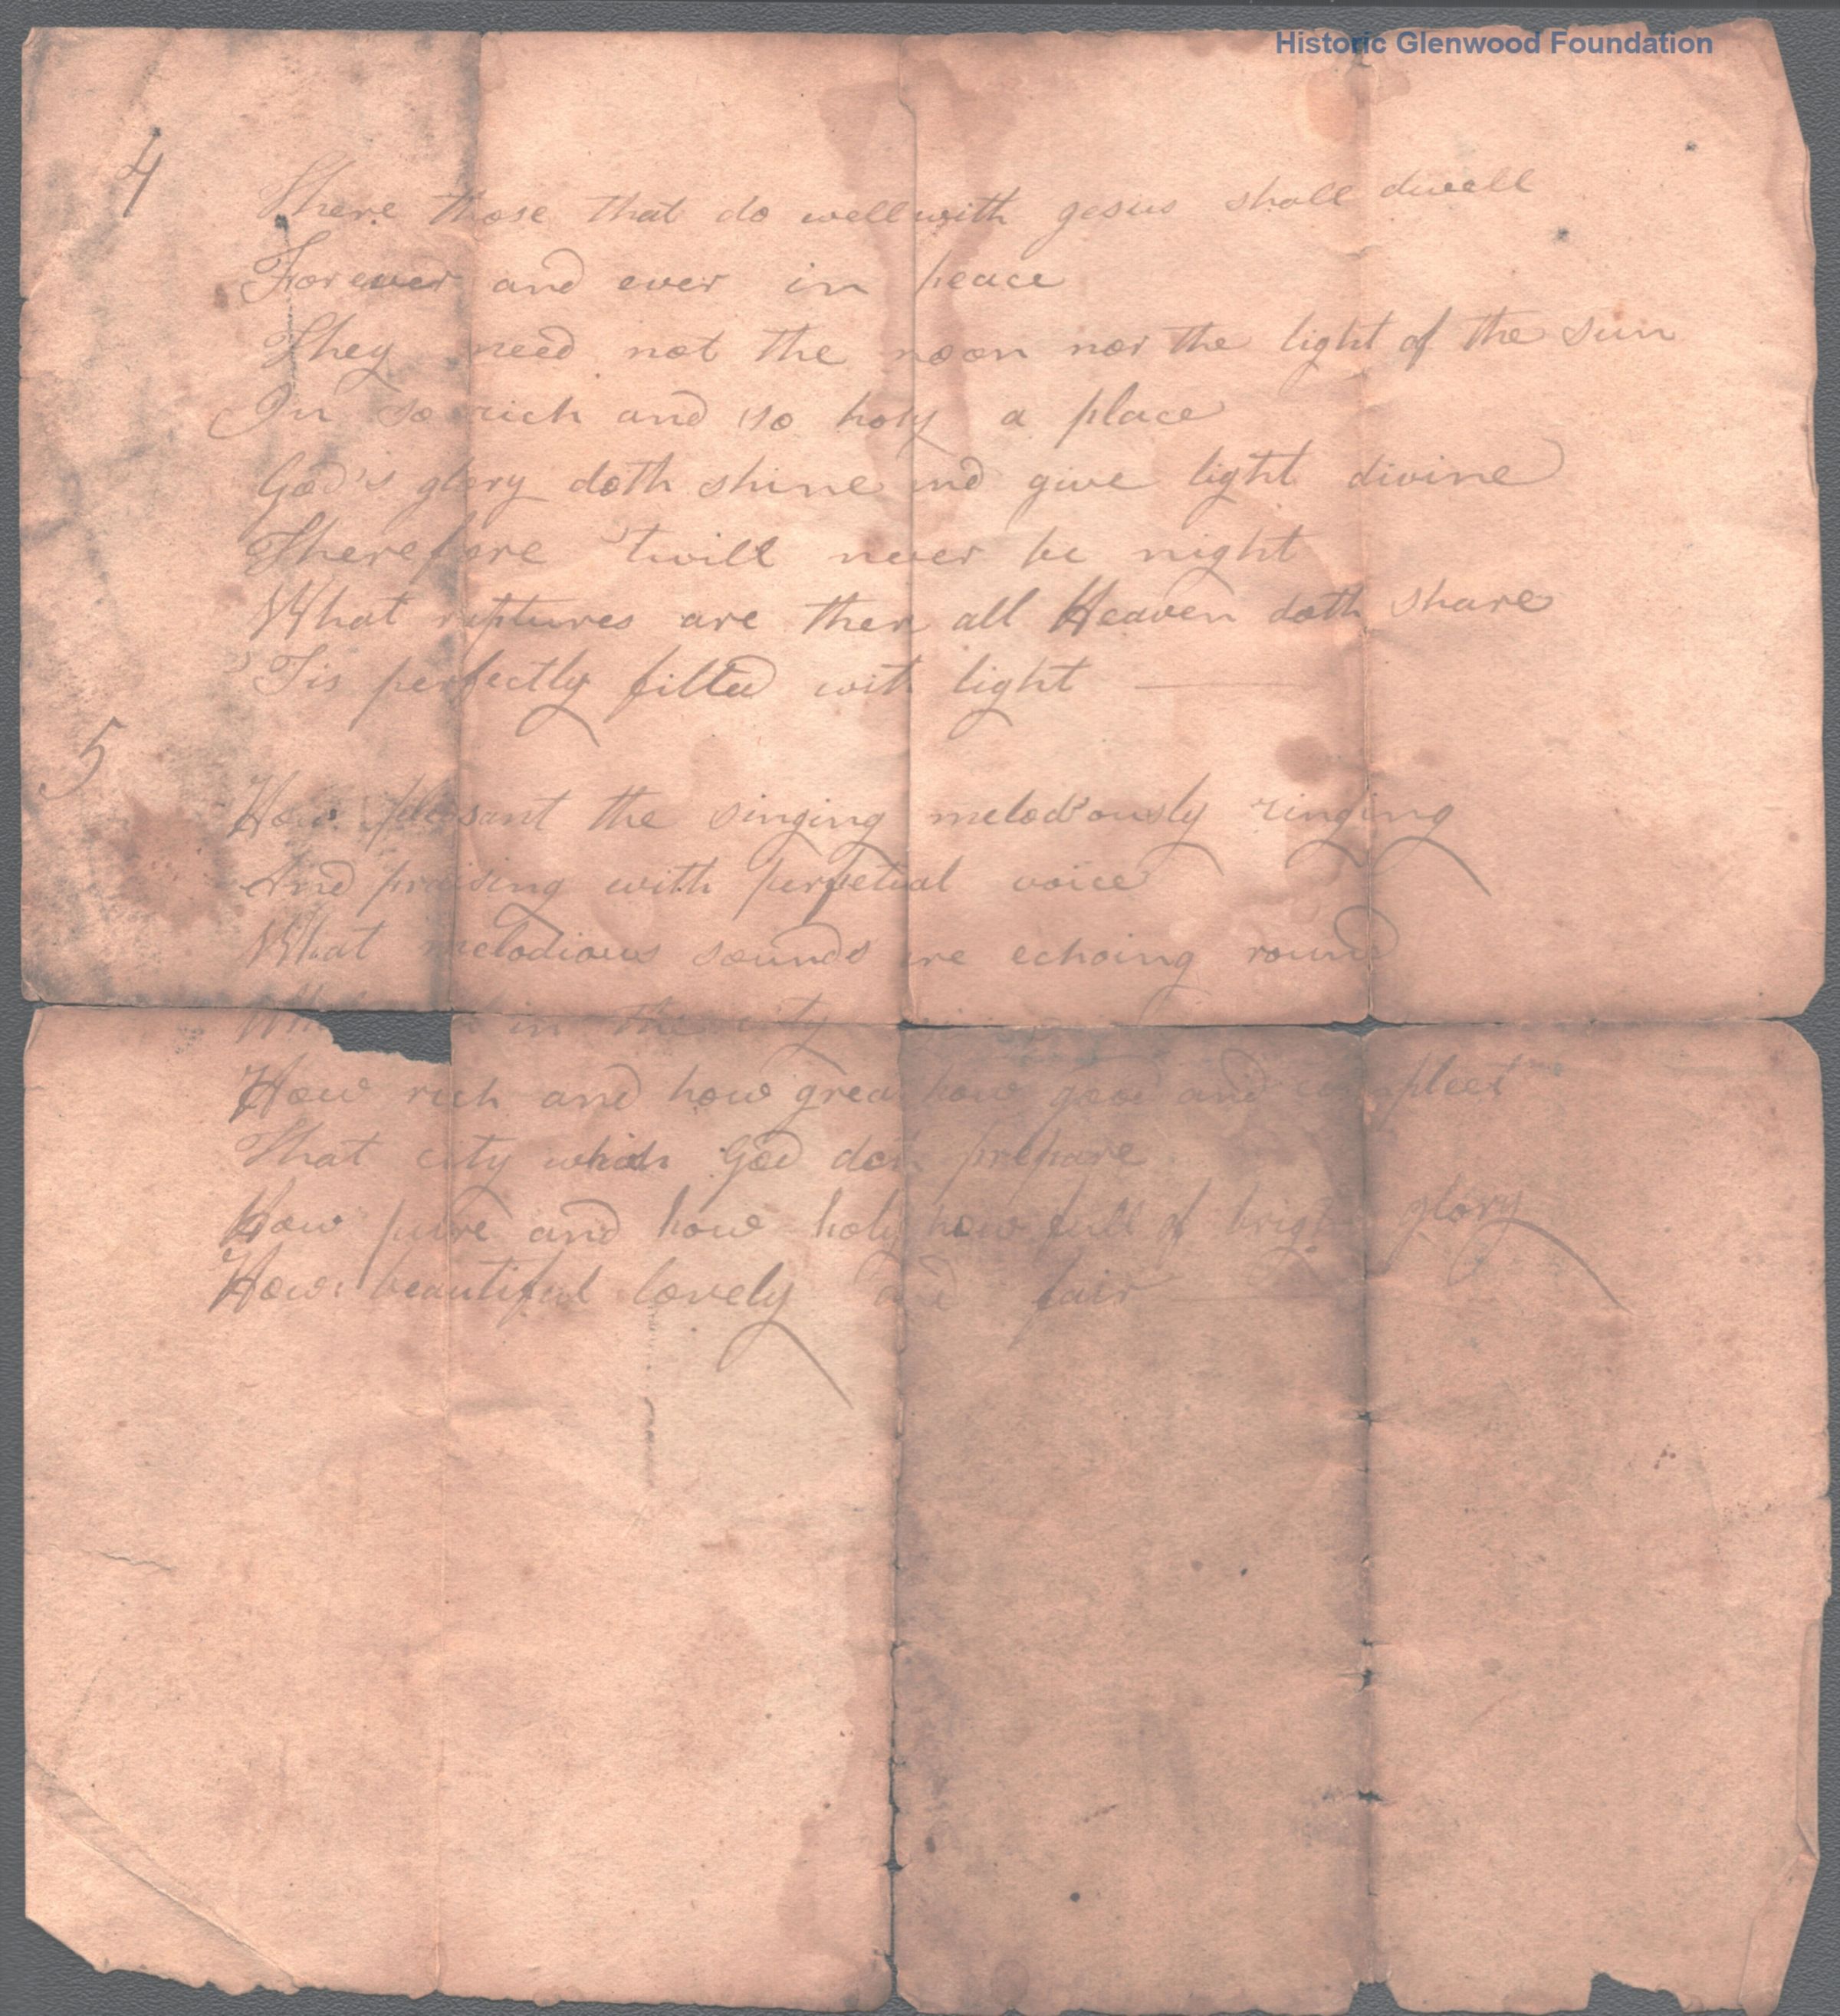 Historic Glenwood Foundation
4
There those that do well with gesus shall dwell
Forever and ever in peace
They need not the noon nor the light of the sun
In so rich and so holy a place
God's glory doth shine and give light divine
Therefore 'twill never be night
What raptures are ther all Heaven doth share
'Tis perfectly filled with light
5
How pleasant the singing melod'ously ringing
And praising with perpetual voice
What melodious sounds are echoing round
in the city
How rich and how great how good and compleet
That city which God doth prepare
How pure and how holy how full of bright glory
How beautiful lovely and fair